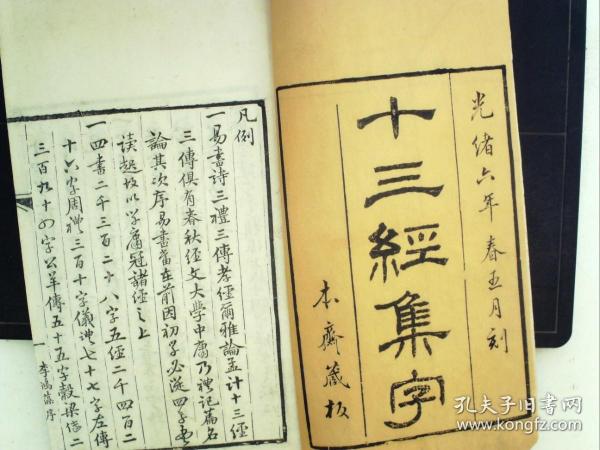 光緒六年春五月刻
十三經集字
本齋藏板
凡例
一易書詩三禮三傳孝經爾雅論孟計十三經
三傳俱有春秋經文大學中庸乃禮記篇名
論其次序易書當在前因初學必從四子書
讀起故以學庸冠諸經之上
一四書二千三百二十八字五經二千四百二
十六字周禮三百十字儀禮七十七字左傳
三百九十四字公羊傳五十五字穀梁傳二
一 李鴻藻序
孔夫子旧书网
www.kongfz.com